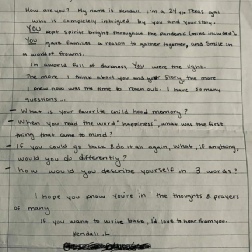 How are you? My name is Kendall. I'm a 24 yr. Texas gal
who is completely intrigued by you and your story.
You kept spirits bright throughout the pandemic
You gave families a reason to gather together, and smile in
a world of frowns.
In a world full of darkness, You were the light.
The more I think about you and your story, the more
I knew now was the time to reach out. I have so many
questions...
- What is your favorite childhood memory?
- When you read the word "happiness", what was the first
thing that came to mind?
- If you could go back & do it all again, what, if anything,
would you do differently?
- How would you describe yourself in 3 words?
I hope you know you're in the thoughts & prayers
of many
If you want to write back, I'd love to hear from you.
Kendall